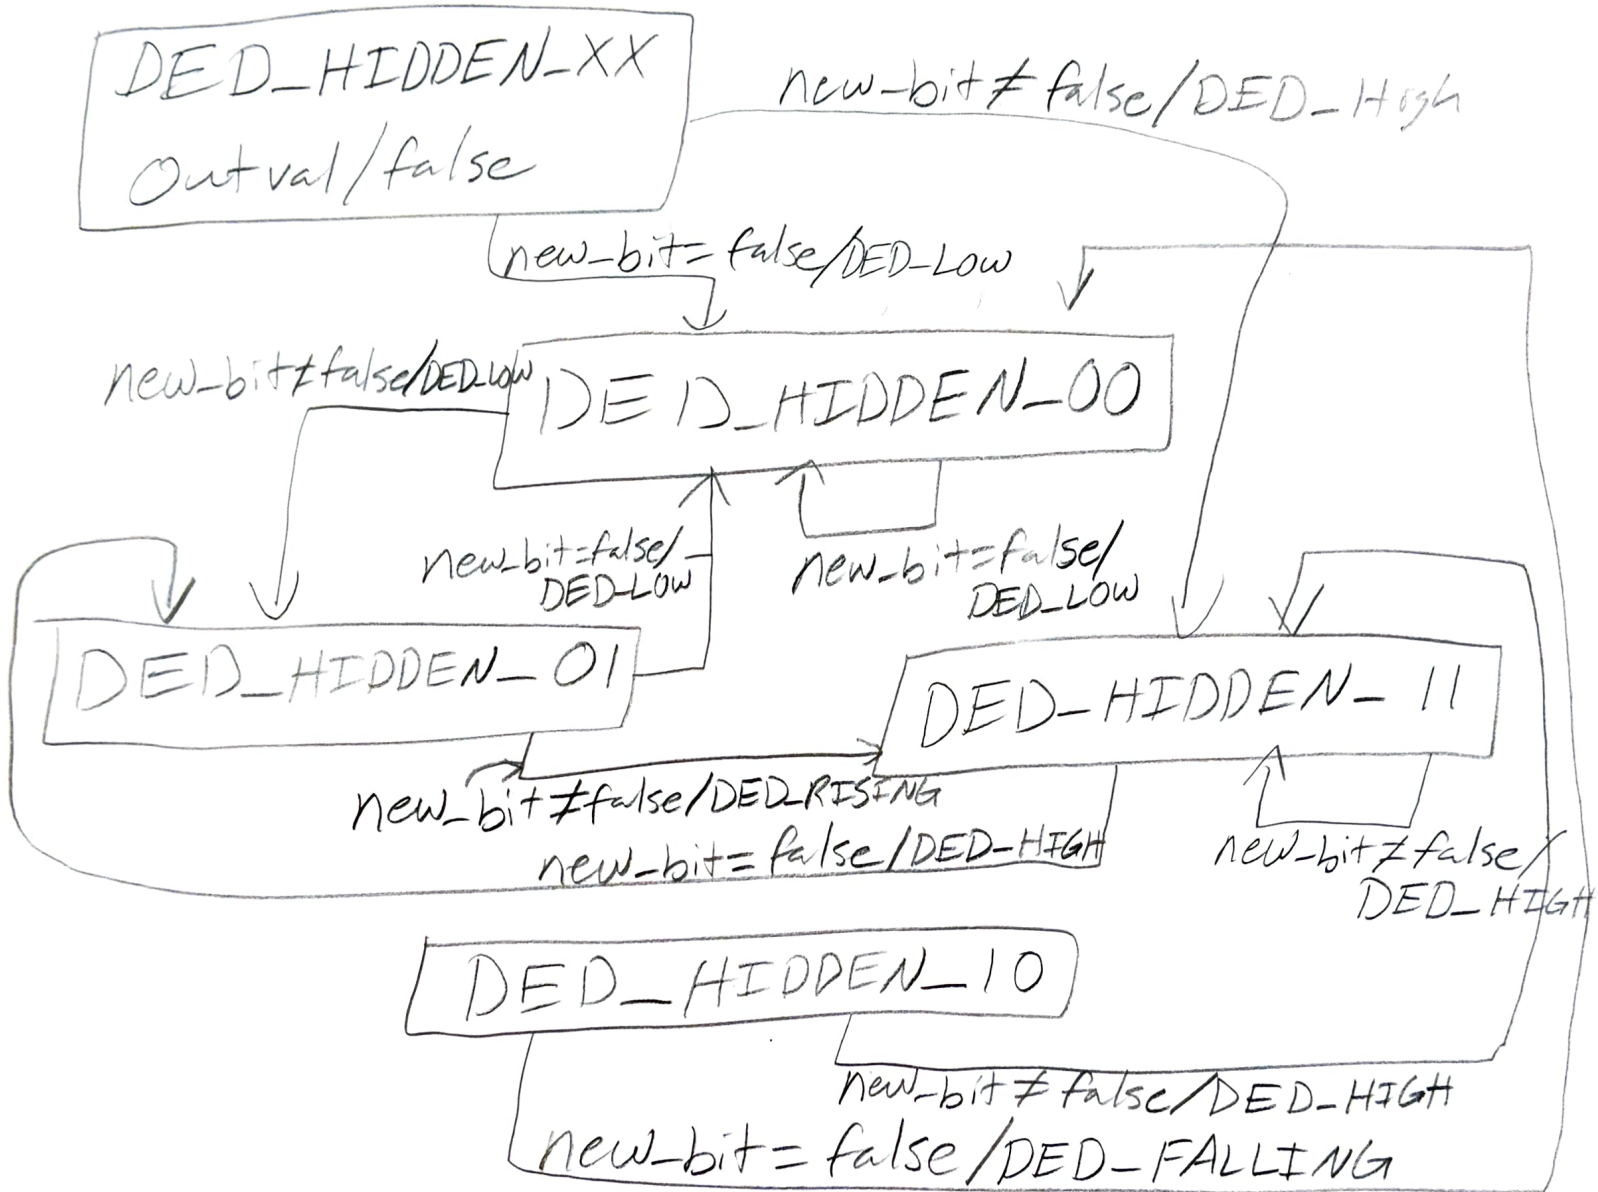 DED_HIDDEN_XX
Outval/false
new_bit≠false/DED_High
new_bit=false/DED_LOW
new_bit≠false/DED_LOW
DED_HIDDEN_00
new_bit=false/
DED_LOW
new_bit=false/
DED_LOW
DED_HIDDEN_01
DED_HIDDEN_11
new_bit≠false/DED_RISING
new_bit=false/DED_HIGH
new_bit≠false/
DED_HIGH
DED_HIDDEN_10
new_bit≠false/DED_HIGH
new_bit=false/DED_FALLING